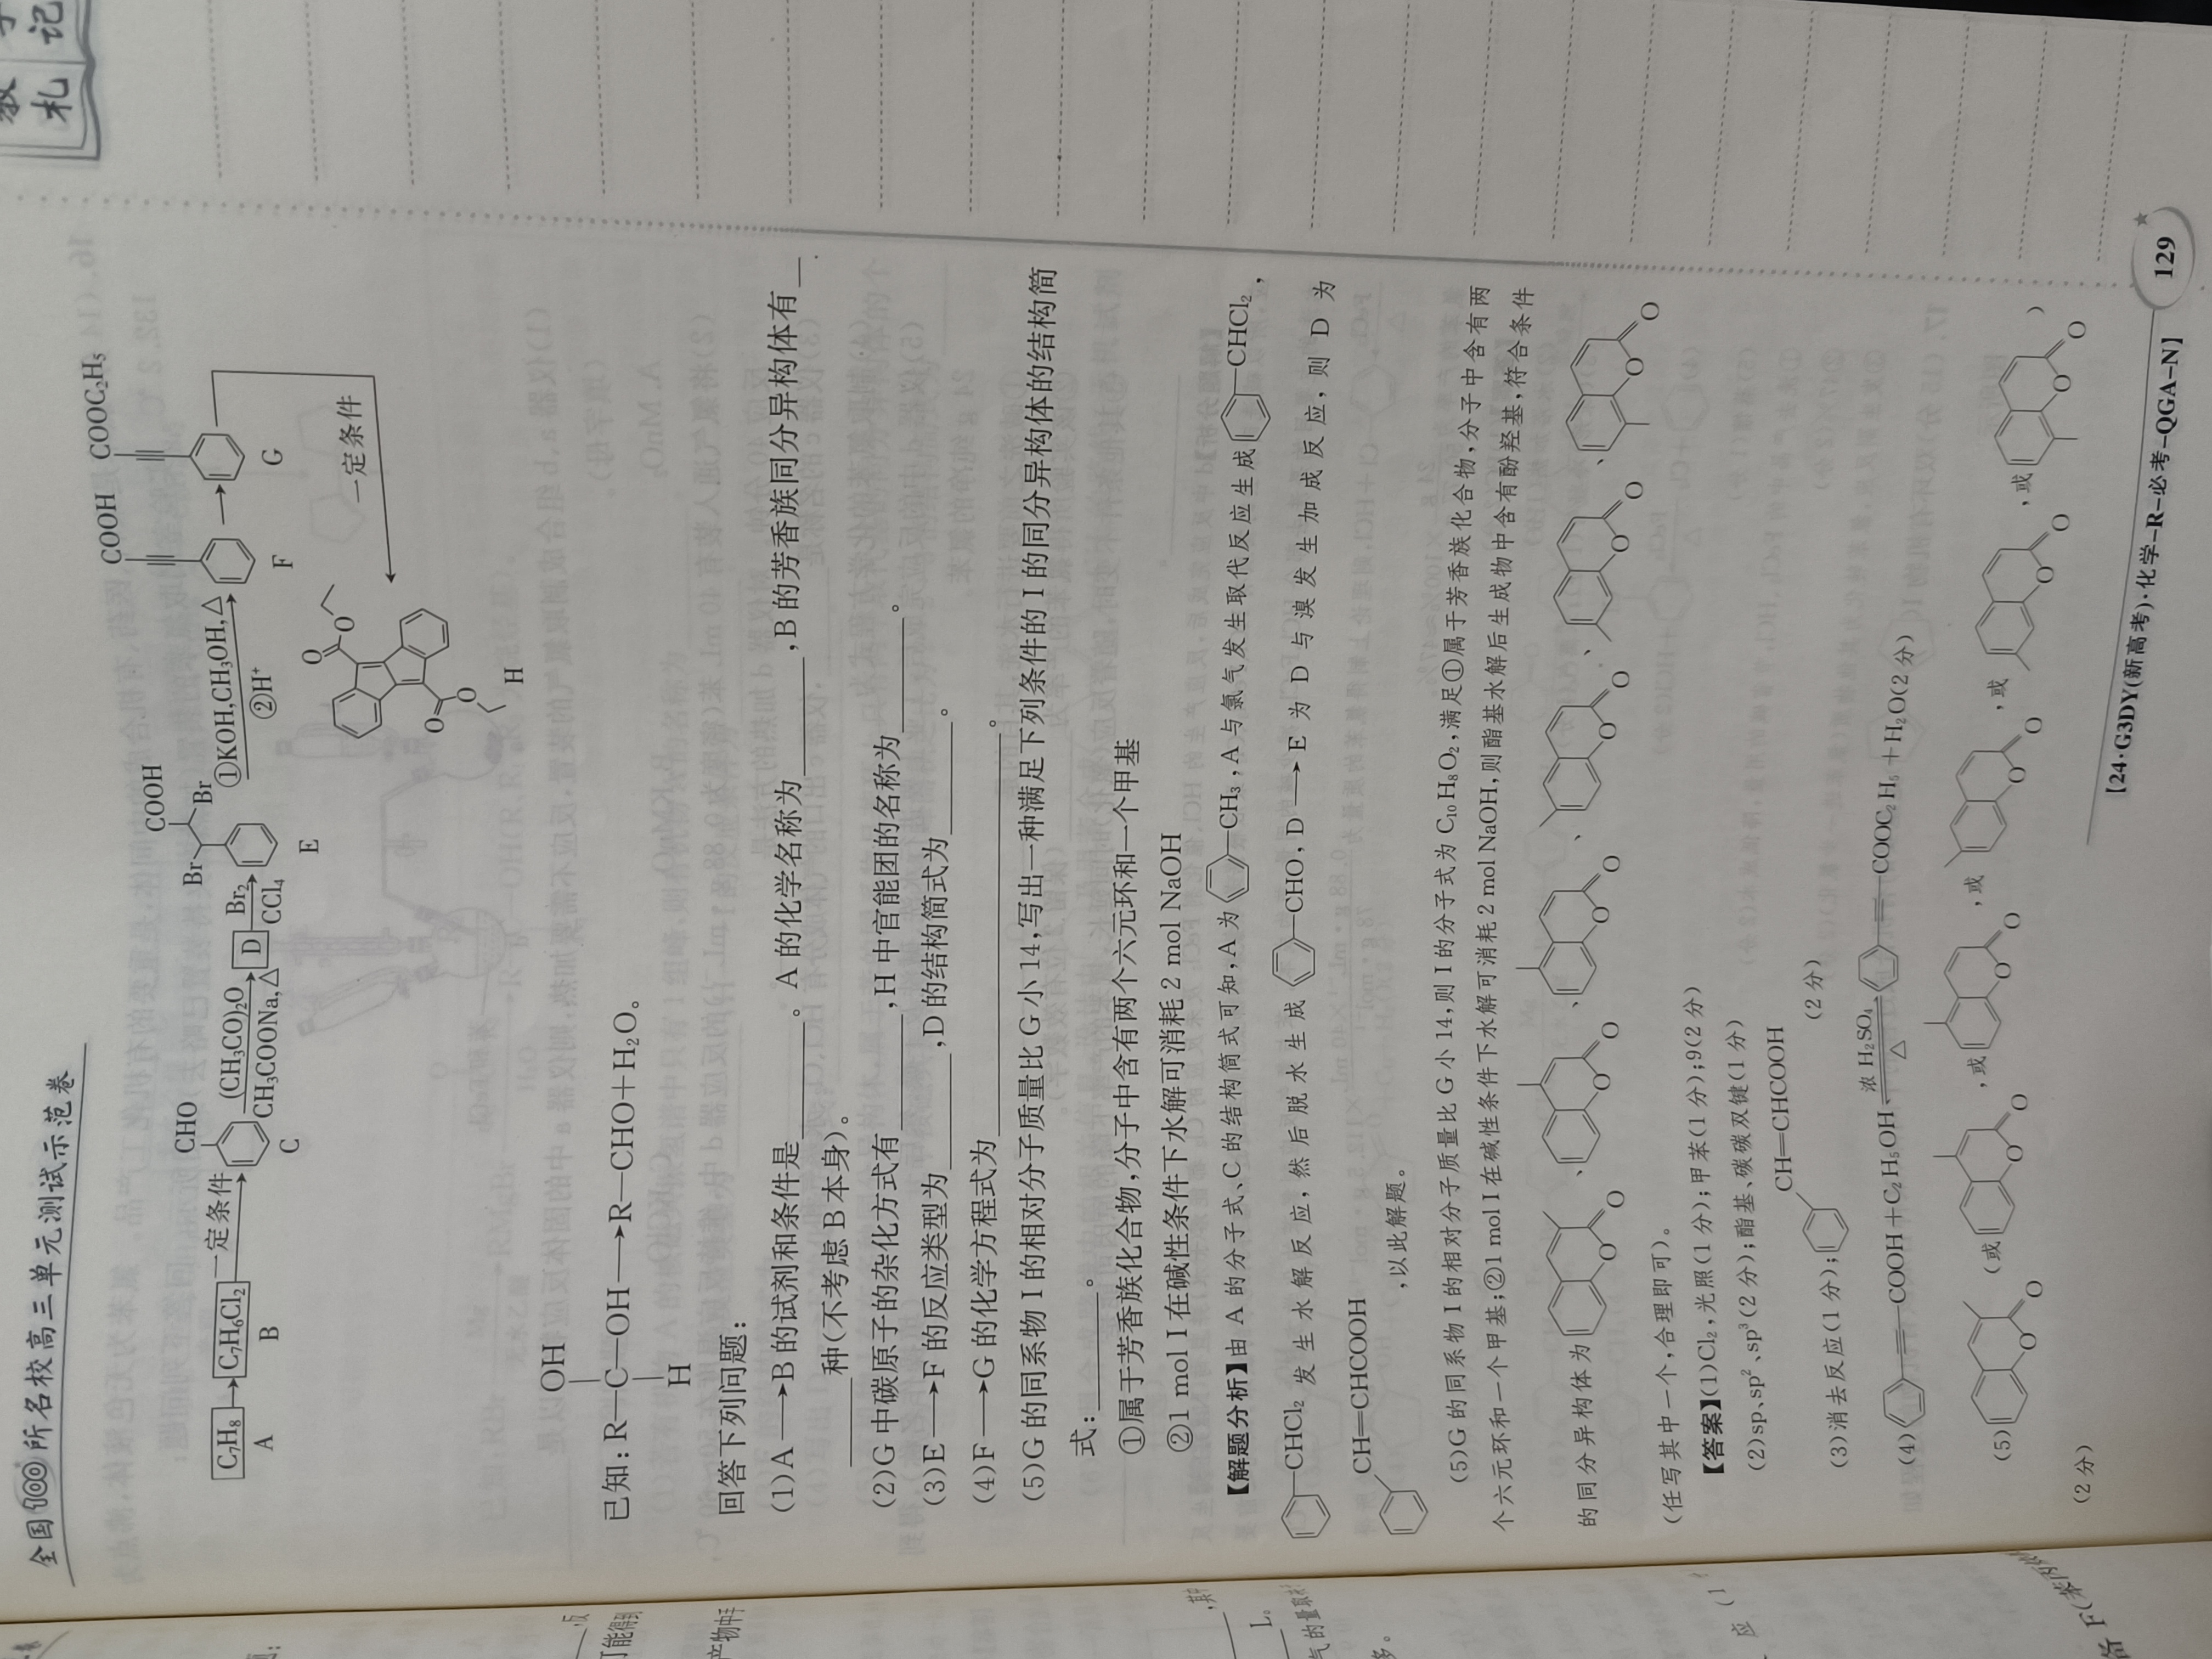 教学
札记
全国100所名校高三单元测试示范卷
C₇H₈ → C₇H₆Cl₂ 一定条件 CHO (CH₃CO)₂O CH₃COONa,△ D Br₂ CCl₄ Br COOH Br ①KOH,CH₃OH,△ ②H⁺ COOH COOC₂H₅
A B C E F G
一定条件
O O O O
H
OH
已知:R—C—OH→R—CHO+H₂O。
H
回答下列问题:
(1)A→B的试剂和条件是______。A的化学名称为______,B的芳香族同分异构体有__
______种(不考虑B本身)。
(2)G中碳原子的杂化方式有______,H中官能团的名称为______。
(3)E→F的反应类型为______,D的结构简式为______。
(4)F→G的化学方程式为______。
(5)G的同系物I的相对分子质量比G小14,写出一种满足下列条件的I的同分异构体的结构简
式:______。
①属于芳香族化合物,分子中含有两个六元环和一个甲基
②1 mol I在碱性条件下水解可消耗2 mol NaOH
【解题分析】由A的分子式、C的结构简式可知,A为—CH₃,A与氯气发生取代反应生成—CHCl₂,
—CHCl₂发生水解反应,然后脱水生成—CHO,D→E为D与溴发生加成反应,则D为
CH=CHCOOH
,以此解题。
(5)G的同系物I的相对分子质量比G小14,则I的分子式为C₁₀H₈O₂,满足①属于芳香族化合物,分子中含有两
个六元环和一个甲基;②1 mol I在碱性条件下水解可消耗2 mol NaOH,则酯基水解后生成物中含有酚羟基,符合条件
的同分异构体为 O O、 O O、 O O、 O O、 O O、 O O
(任写其中一个,合理即可)。
【答案】(1)Cl₂,光照(1分);甲苯(1分);9(2分)
(2)sp、sp²、sp³(2分);酯基、碳碳双键(1分)
CH=CHCOOH
(3)消去反应(1分); (2分)
(4)—≡—COOH+C₂H₅OH 浓H₂SO₄ △ —≡—COOC₂H₅+H₂O(2分)
(5) O O (或 O O,或 O O,或 O O,或 O O,或 O O)
(2分)
129
【24·G3DY(新高考)·化学-R-必考-QGA-N】